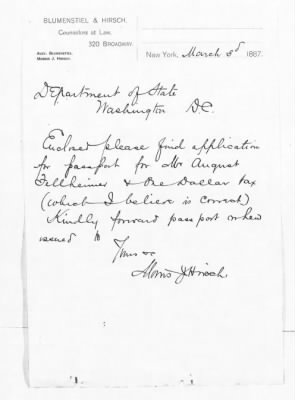 BLUMENSTIEL & HIRSCH.
Counselors at Law,
320 BROADWAY.
ALEX. BLUMENSTIEL.
MORRIS J. HIRSCH.
New York, March 3d 1887.
Department of State
Washington D.C.
Enclosed please find application
for passport for Mr August
Fellheimer & One Dollar tax
(which I believe is correct)
Kindly forward passport when
issued to
Yours &c
Morris J Hirsch